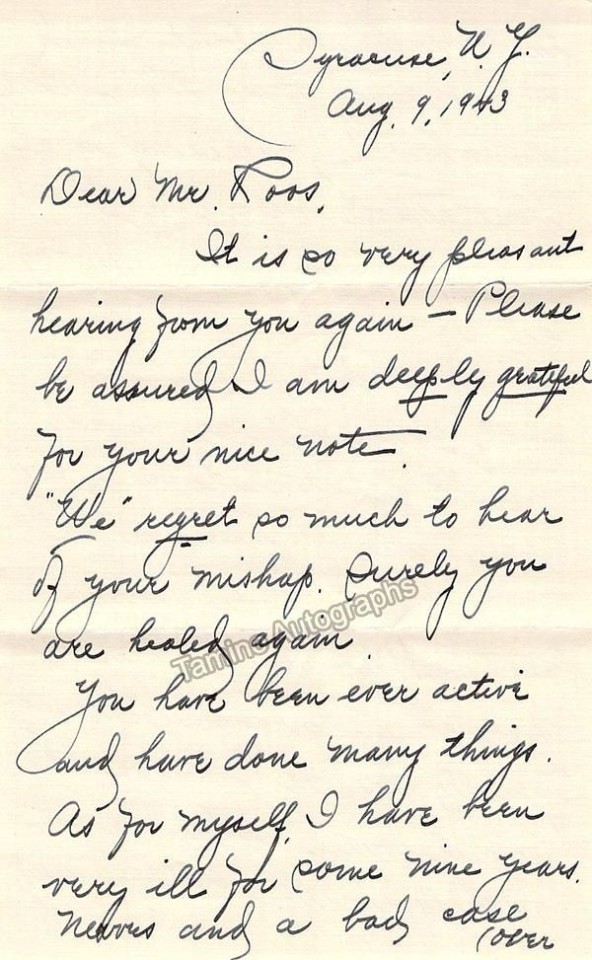 Syracuse, N.Y.
Aug. 9, 1943
Dear Mr. Roos,
It is so very pleasant
hearing from you again — Please
be assured I am deeply grateful
for your nice note.
"We" regret so much to hear
of your mishap. Surely you
are healed again.
You have been ever active
and have done many things.
As for myself, I have been
very ill for some nine years.
Nerves and a bad case
(over
Tamino Autographs